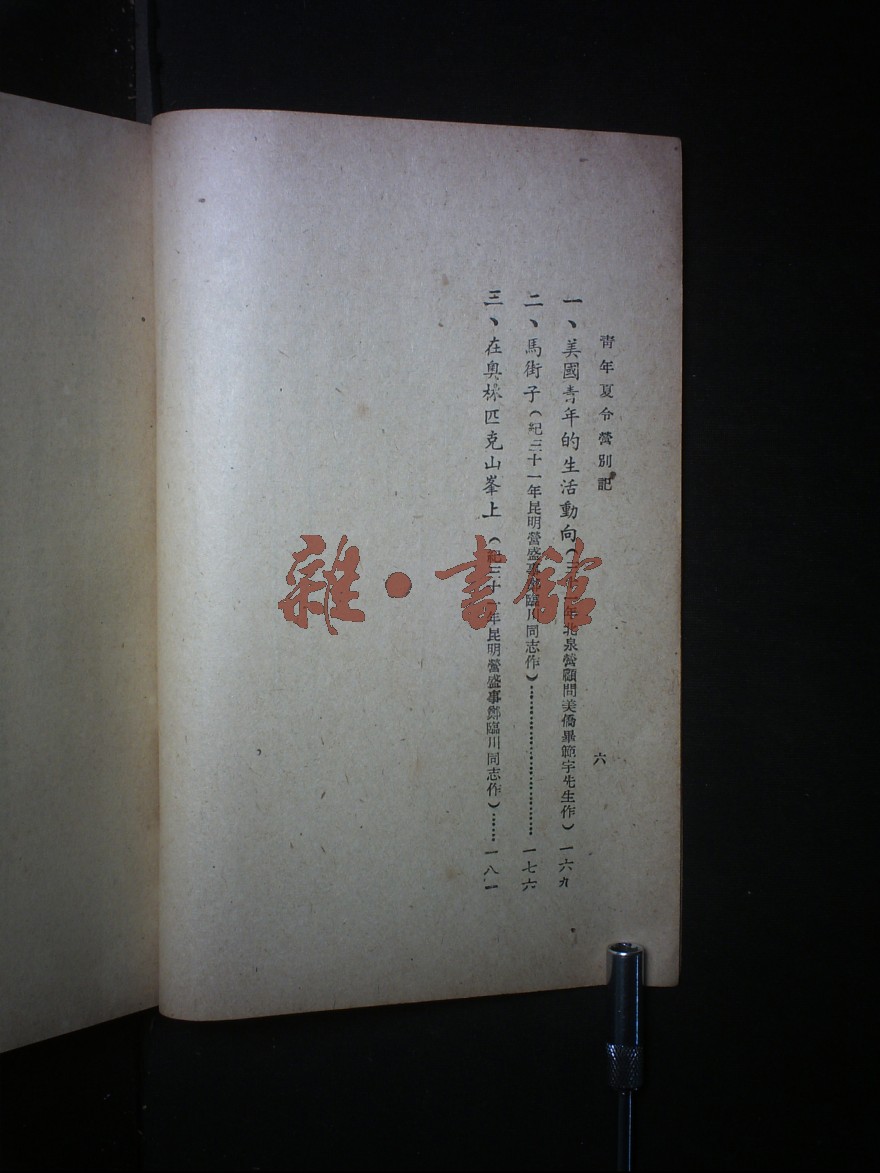 青年夏令營別記
六
一、美國青年的生活動向(三十一年北泉營顧問美僑畢範宇先生作)一六九
二、馬街子(紀三十一年昆明營盛事鄭臨川同志作)……………………一七六
三、在奧林匹克山峯上(紀三十一年昆明營盛事鄭臨川同志作)……一八一
雜·書館